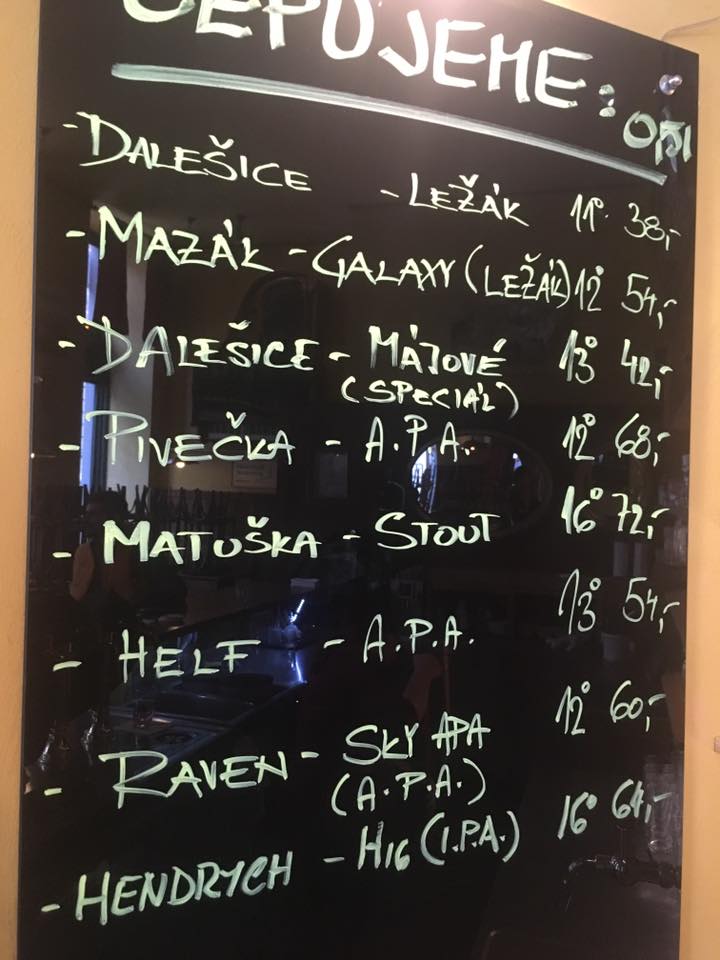 ČEPUJEME: 0,5l
- DALEŠICE - LEŽÁK 11° 38,-
- MAZÁK - GALAXY (LEŽÁK) 12° 54,-
- DALEŠICE - MÁJOVÉ 13° 42,-
(SPECIÁL)
- PIVEČKA - A.P.A. 12° 68,-
- MATUŠKA - STOUT 16° 72,-
- HELF - A.P.A. 13° 54,-
- RAVEN - SKY APA 12° 60,-
(A.P.A.)
- HENDRYCH - H16 (I.P.A.) 16° 64,-